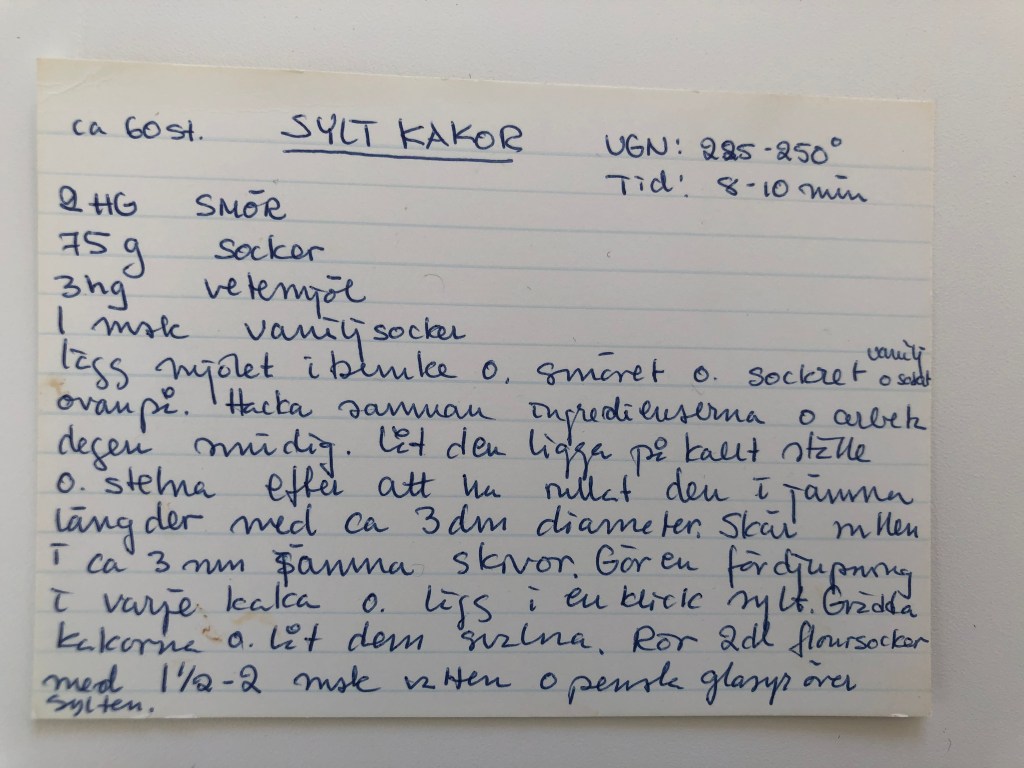 ca 60 st. SYLT KAKOR UGN: 225-250°
Tid: 8-10 min
2 HG SMÖR
75 g socker
3 hg vetemjöl
1 msk vaniljsocker
lägg mjölet i bunke o. smöret o. sockret vanilj
o sockret
ovanpå. Hacka samman ingredienserna o arbeta
degen smidig. Låt den ligga på kallt ställe
o. stelna efter att ha rullat den i jämna
längder med ca 3 dm diameter. Skär rullen
i ca 3 mm jämna skivor. Gör en fördjupning
i varje kaka o. lägg i en klick sylt. Grädda
kakorna o. låt dem svalna. Rör 2 dl floursocker
med 1 1/2 - 2 msk vatten o pensla glasyr över
sylten.